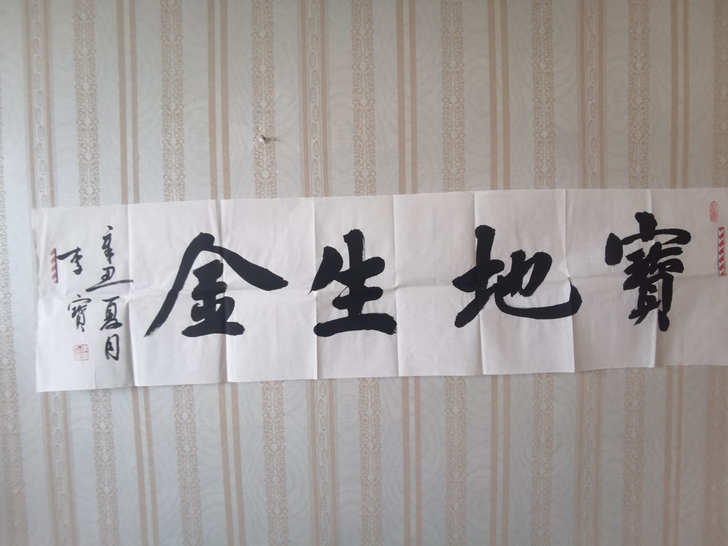 寶地生金
辛丑夏月
李寶